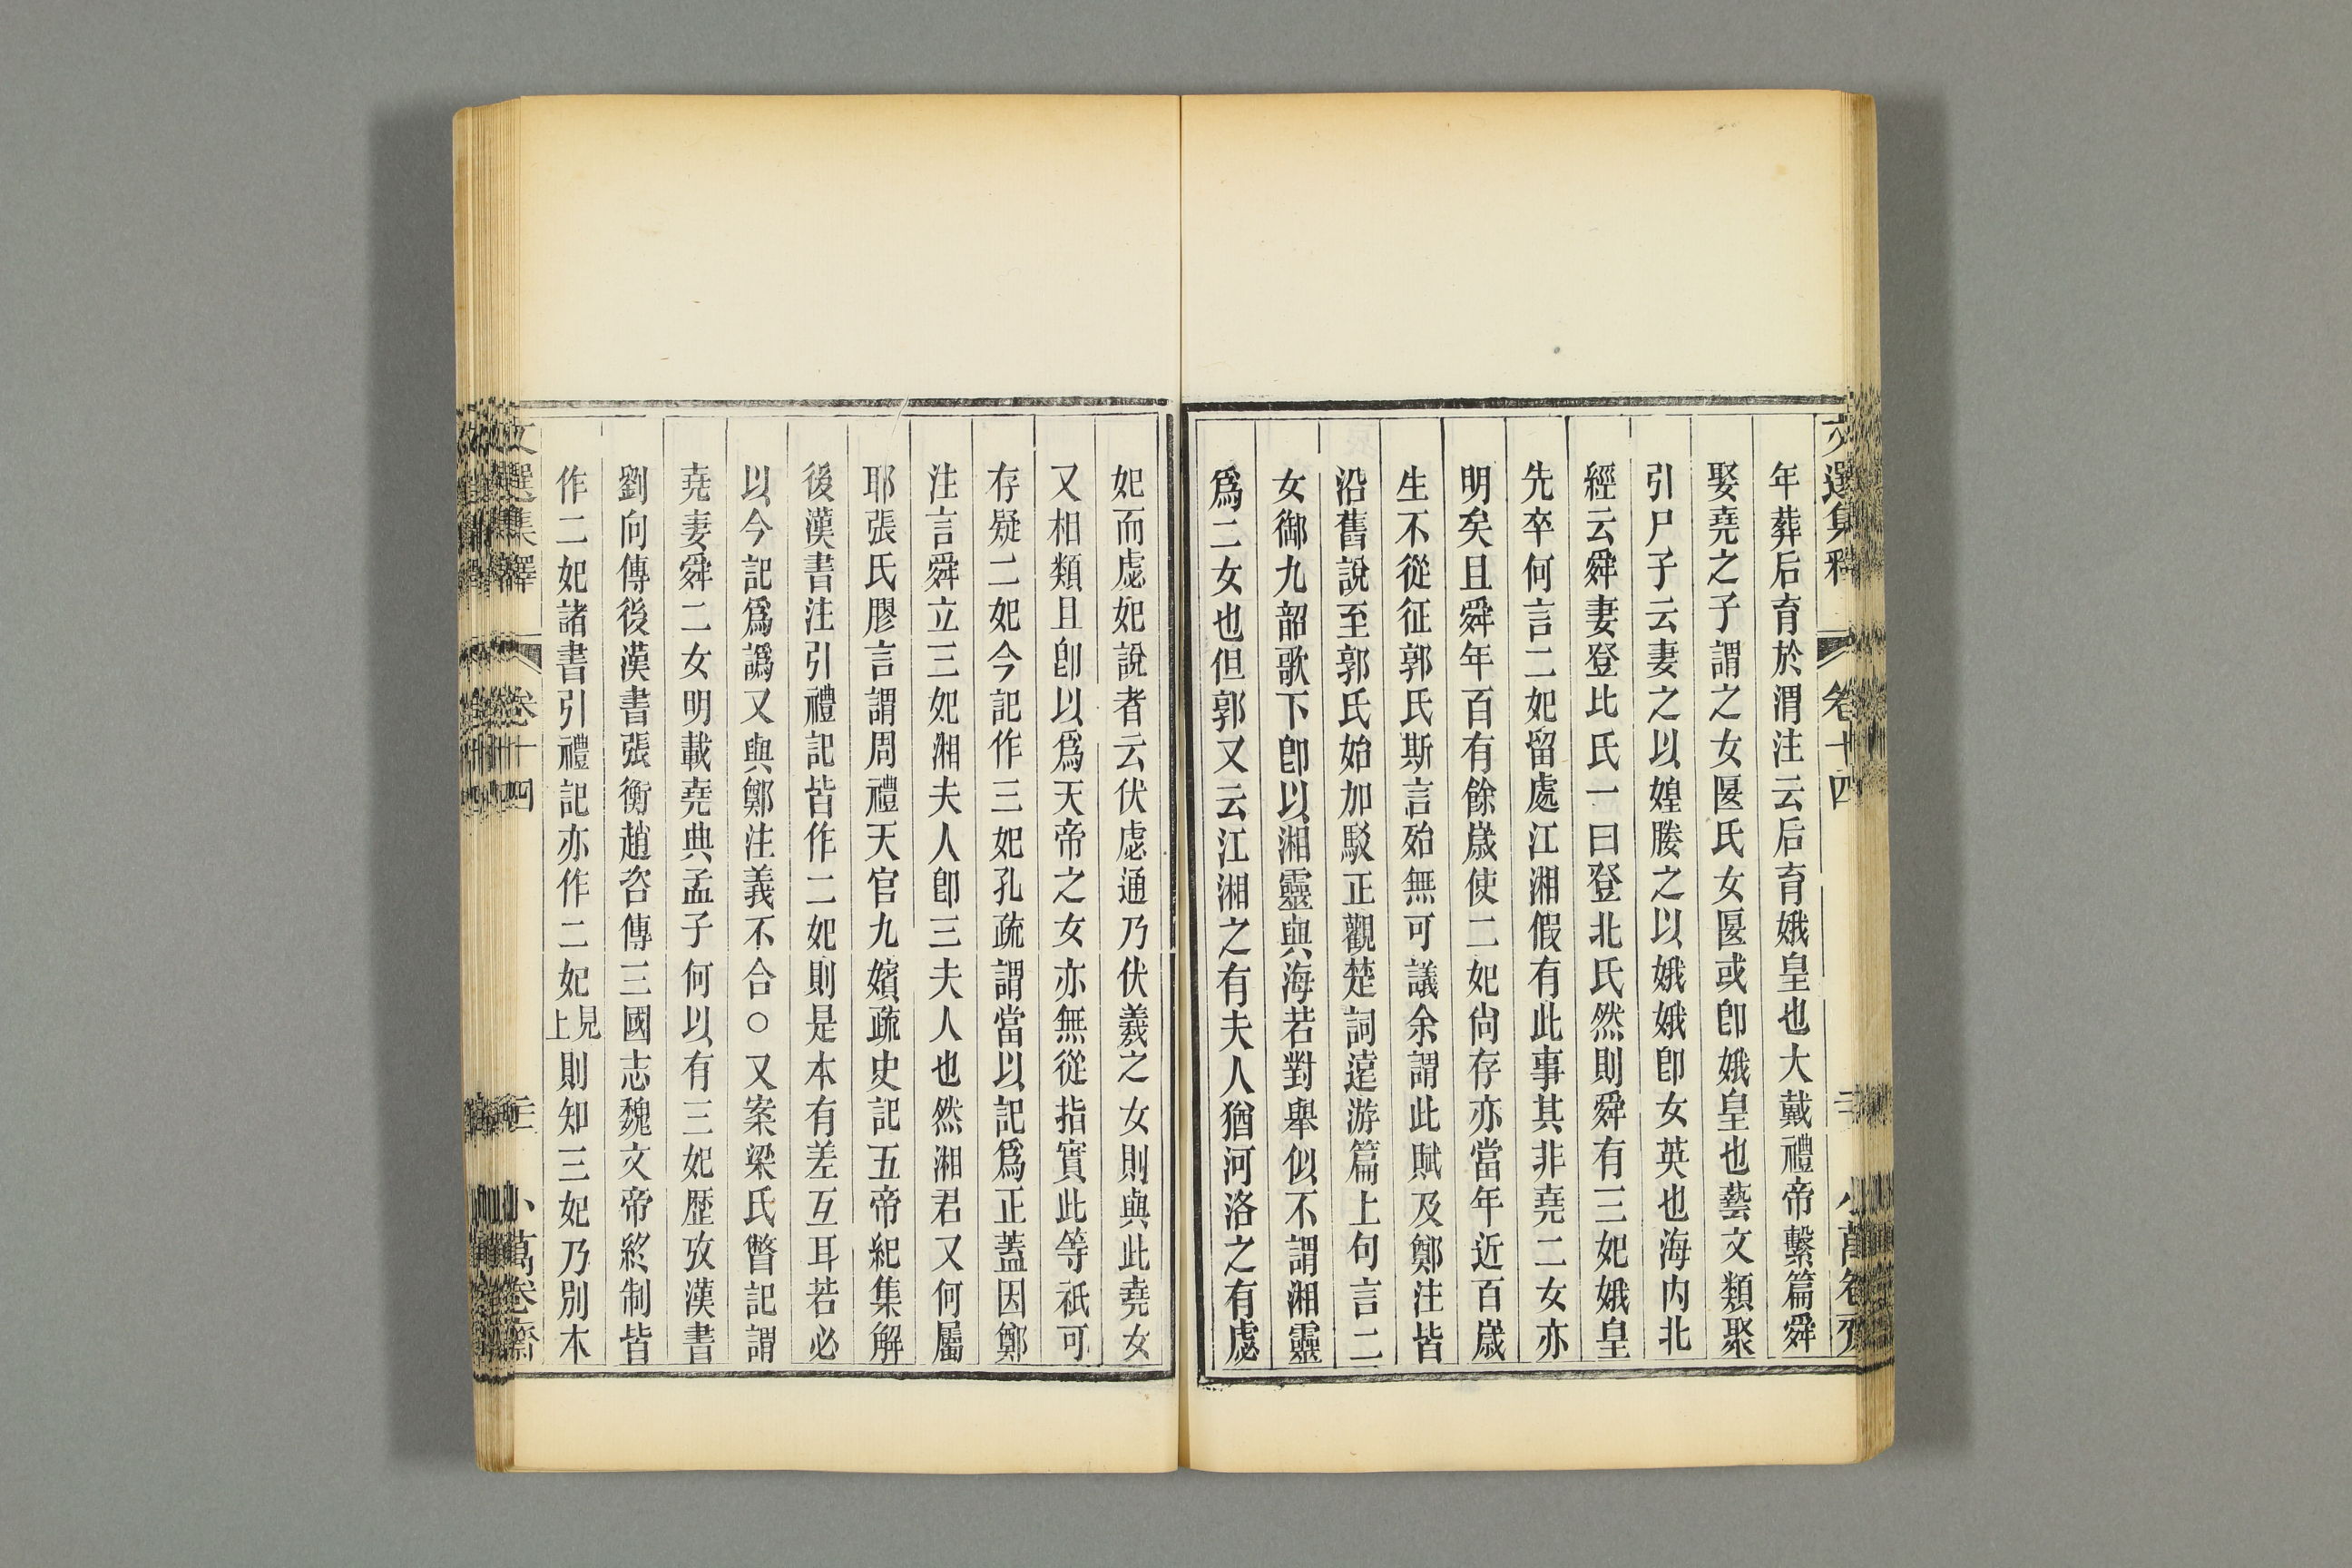 文選集釋 卷十四 小萬卷齋
年葬后育於渭注云后育娥皇也大戴禮帝繫篇舜
娶堯之子謂之女匽氏女匽或卽娥皇也藝文類聚
引尸子云妻之以媓媵之以娥娥卽女英也海内北
經云舜妻登比氏一曰登北氏然則舜有三妃娥皇
先卒何言二妃留處江湘假有此事其非堯二女亦
明矣且舜年百有餘歲使二妃尙存亦當年近百歲
生不從征郭氏斯言殆無可議余謂此賦及鄭注皆
沿舊說至郭氏始加駁正觀楚詞遠游篇上句言二
女御九韶歌下卽以湘靈與海若對舉似不謂湘靈
爲二女也但郭又云江湘之有夫人猶河洛之有虙
妃而虙妃說者云伏虙通乃伏羲之女則與此堯女
又相類且卽以爲天帝之女亦無從指實此等祇可
存疑二妃今記作三妃孔疏謂當以記爲正蓋因鄭
注言舜立三妃湘夫人卽三夫人也然湘君又何屬
耶張氏膠言謂周禮天官九嬪疏史記五帝紀集解
後漢書注引禮記皆作二妃則是本有差互耳若必
以今記爲譌又與鄭注義不合○又案梁氏瞥記謂
堯妻舜二女明載堯典孟子何以有三妃歷攷漢書
劉向傳後漢書張衡趙咨傳三國志魏文帝終制皆
作二妃諸書引禮記亦作二妃見上則知三妃乃別木
文選集釋 卷十四 小萬卷齋